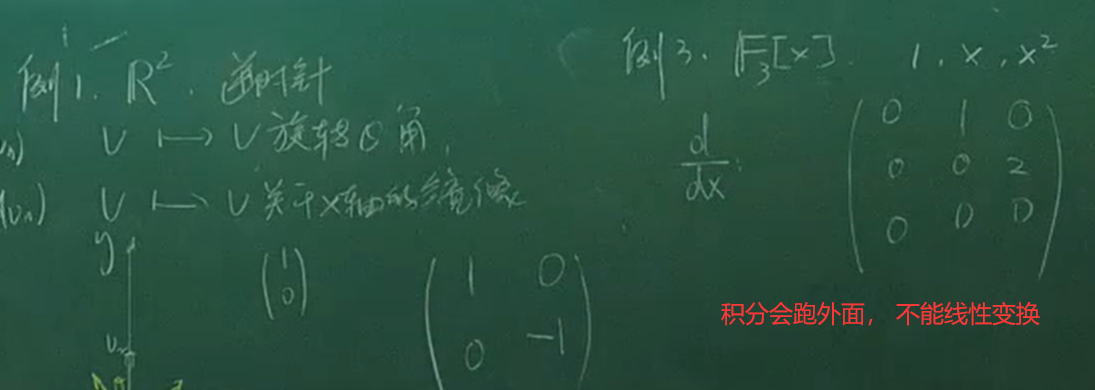 例1. ℝ². 逆时针
υ ↦ υ旋转θ角,
υ ↦ υ关于x轴的镜像
y
(1
0)
(1 0
0 -1)
例3. 𝔽₃[x]. 1, x, x²
d
dx :
(0 1 0
0 0 2
0 0 0)
积分会跑外面， 不能线性变换